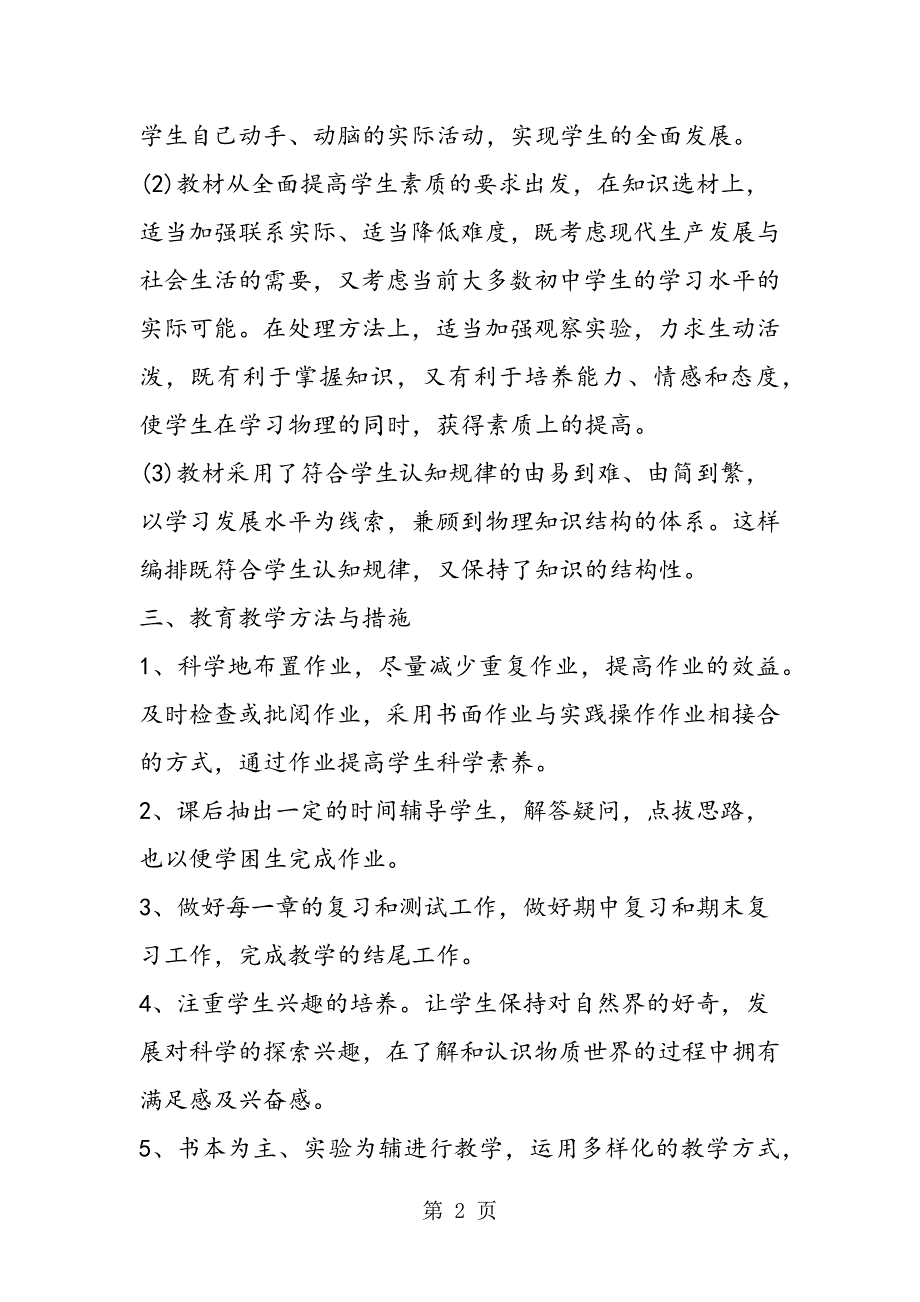 学生自己动手、动脑的实际活动，实现学生的全面发展。
(2)教材从全面提高学生素质的要求出发，在知识选材上，
适当加强联系实际、适当降低难度，既考虑现代生产发展与
社会生活的需要，又考虑当前大多数初中学生的学习水平的
实际可能。在处理方法上，适当加强观察实验，力求生动活
泼，既有利于掌握知识，又有利于培养能力、情感和态度，
使学生在学习物理的同时，获得素质上的提高。
(3)教材采用了符合学生认知规律的由易到难、由简到繁，
以学习发展水平为线索，兼顾到物理知识结构的体系。这样
编排既符合学生认知规律，又保持了知识的结构性。
三、教育教学方法与措施
1、科学地布置作业，尽量减少重复作业，提高作业的效益。
及时检查或批阅作业，采用书面作业与实践操作作业相接合
的方式，通过作业提高学生科学素养。
2、课后抽出一定的时间辅导学生，解答疑问，点拔思路，
也以便学困生完成作业。
3、做好每一章的复习和测试工作，做好期中复习和期末复
习工作，完成教学的结尾工作。
4、注重学生兴趣的培养。让学生保持对自然界的好奇，发
展对科学的探索兴趣，在了解和认识物质世界的过程中拥有
满足感及兴奋感。
5、书本为主、实验为辅进行教学，运用多样化的教学方式，
第 2 页